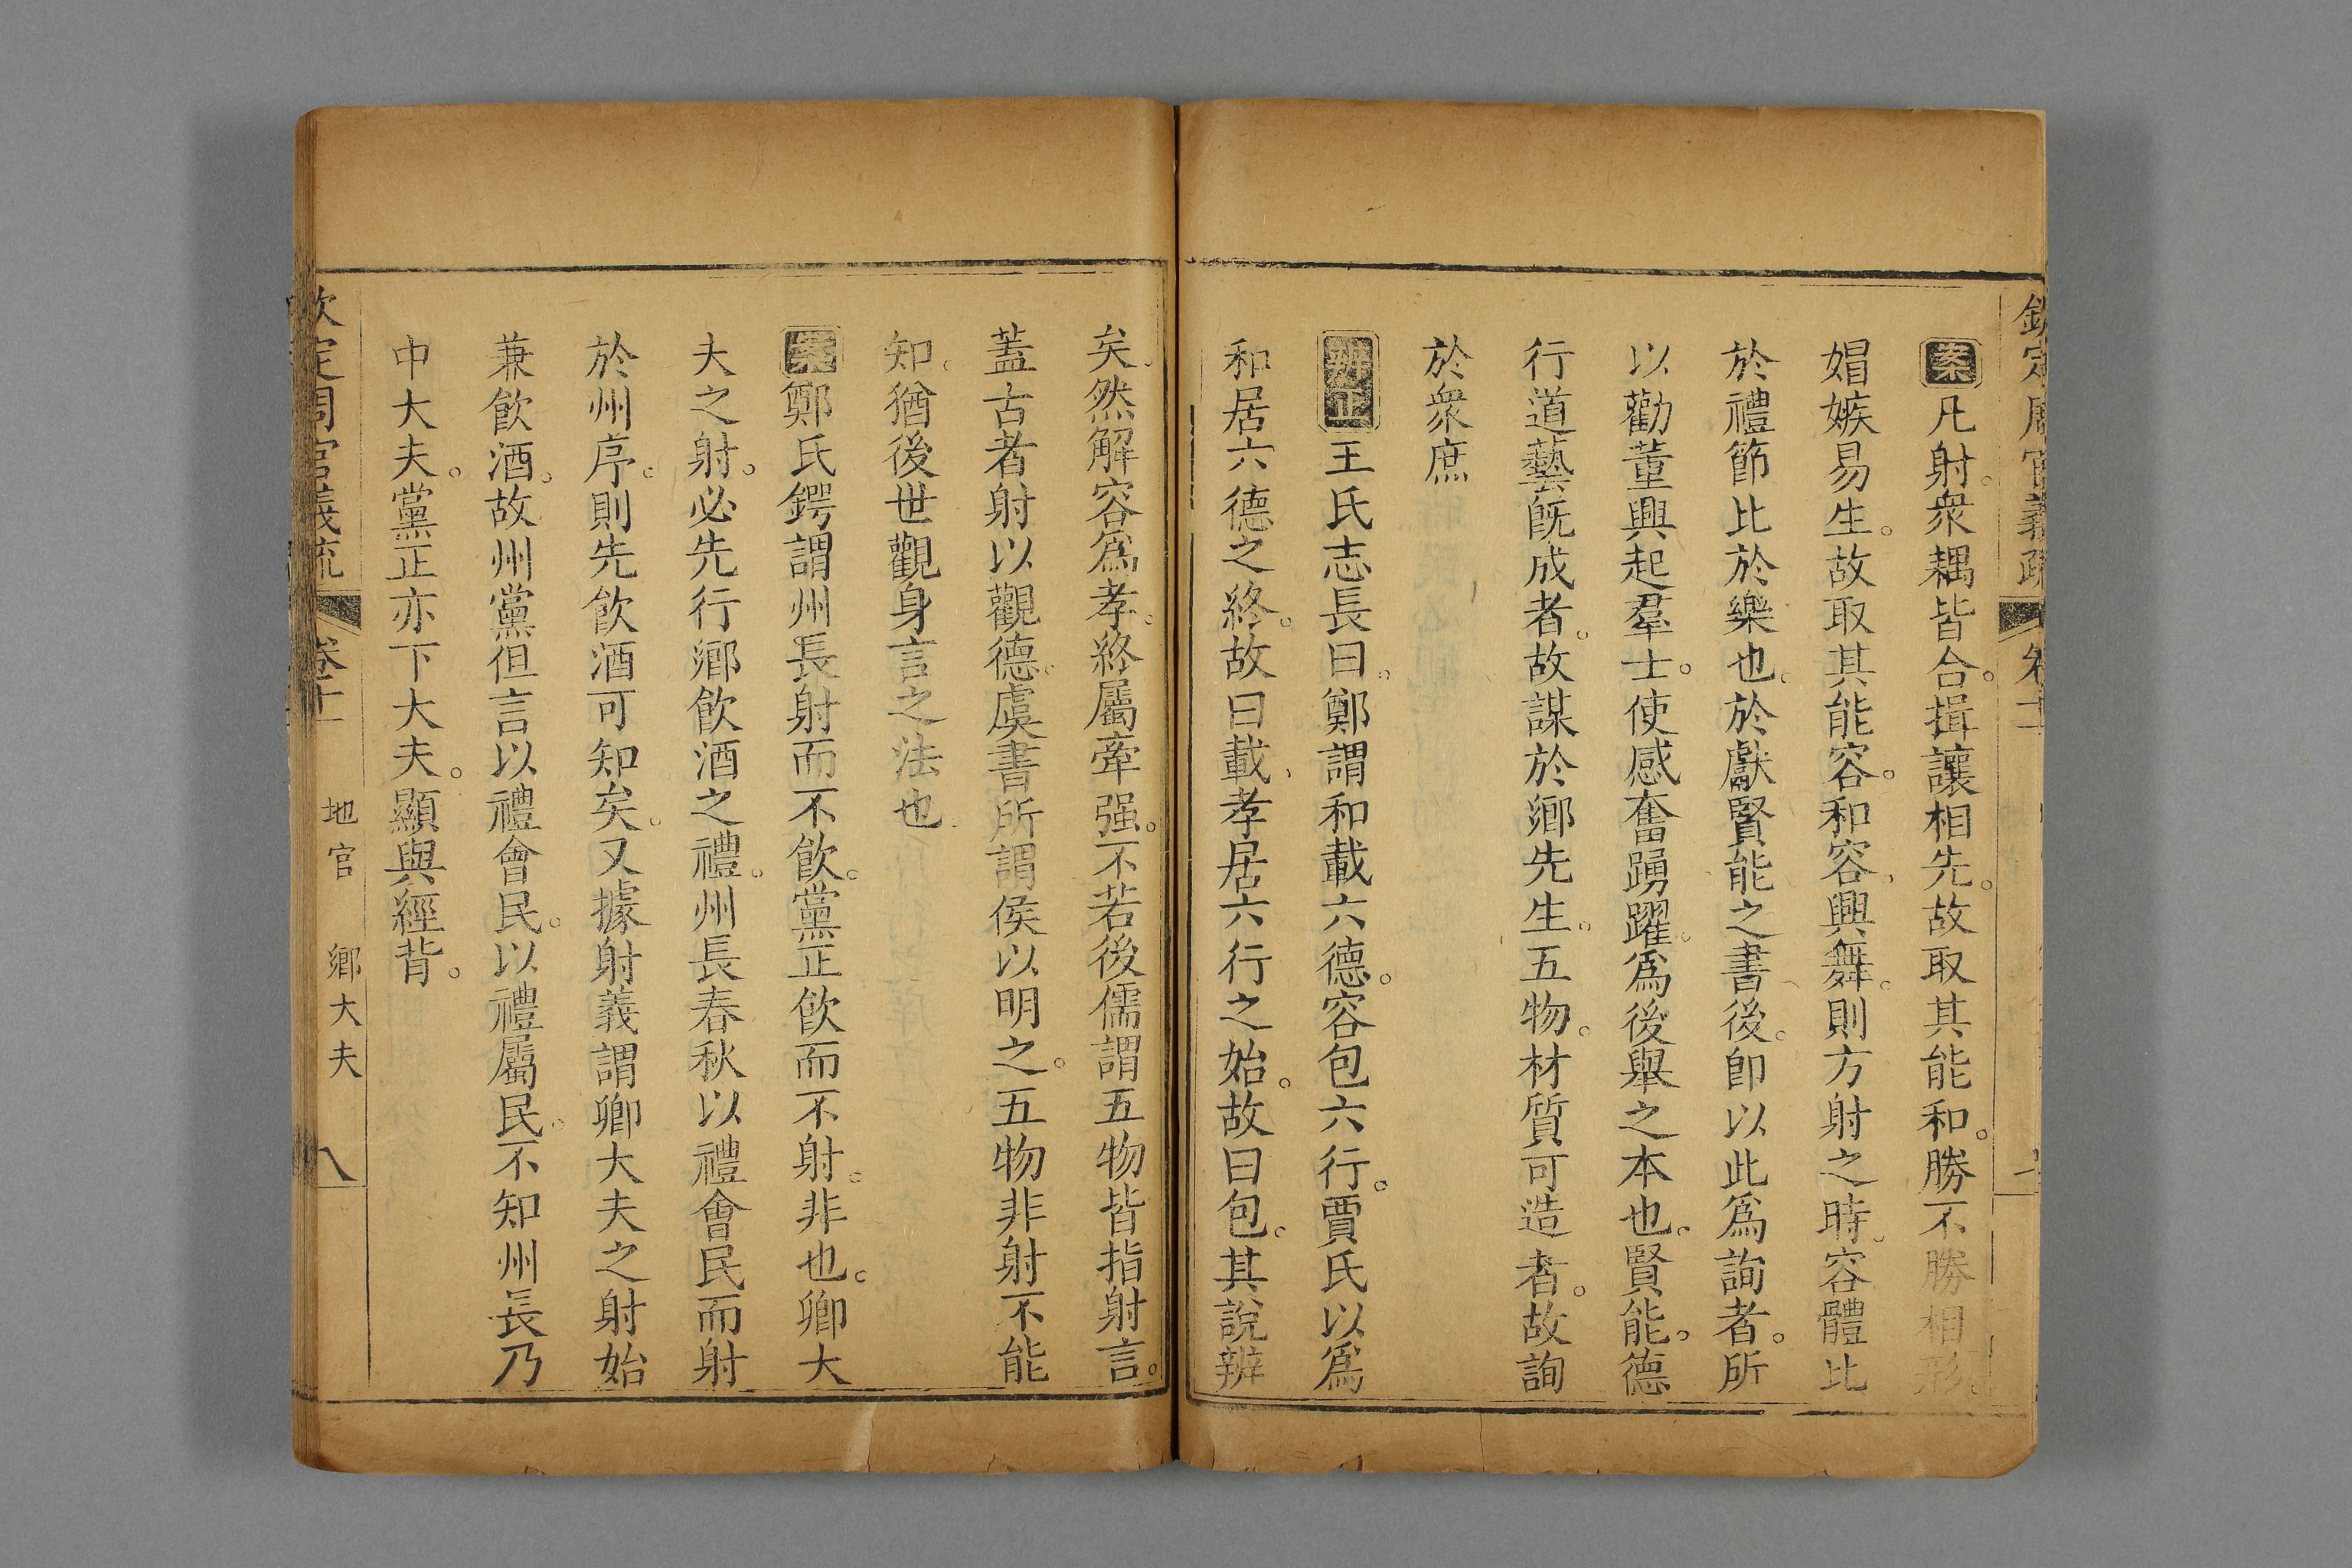 欽定周官義疏 卷十一
案凡射。衆耦皆合。揖讓相先。故取其能和。勝不勝相形。
娼嫉易生。故取其能容。和容、興舞。則方射之時。容體比
於禮節比於樂也。於獻賢能之書後。卽以此爲詢者。所
以勸董興起羣士。使感奮踴躍。爲後舉之本也。賢能。德
行道藝旣成者。故謀於鄉先生。五物。材質可造者。故詢
於衆庶
辨正王氏志長曰。鄭謂和載六德。容包六行。賈氏以爲
和居六德之終。故曰載、孝居六行之始。故曰包。其說辨
矣。然解容爲孝。終屬牽强。不若後儒謂五物皆指射言。
蓋古者射以觀德。虞書所謂侯以明之。五物非射不能
知。猶後世觀身言之法也
案鄭氏鍔謂州長射而不飮。黨正飮而不射。非也。卿大
夫之射。必先行鄉飮酒之禮。州長春秋以禮會民而射
於州序。則先飮酒可知矣。又據射義謂卿大夫之射始
兼飮酒。故州黨但言以禮會民。以禮屬民。不知州長乃
中大夫。黨正亦下大夫。顯與經背。
欽定周官義疏 卷十一 地官 鄉大夫 八